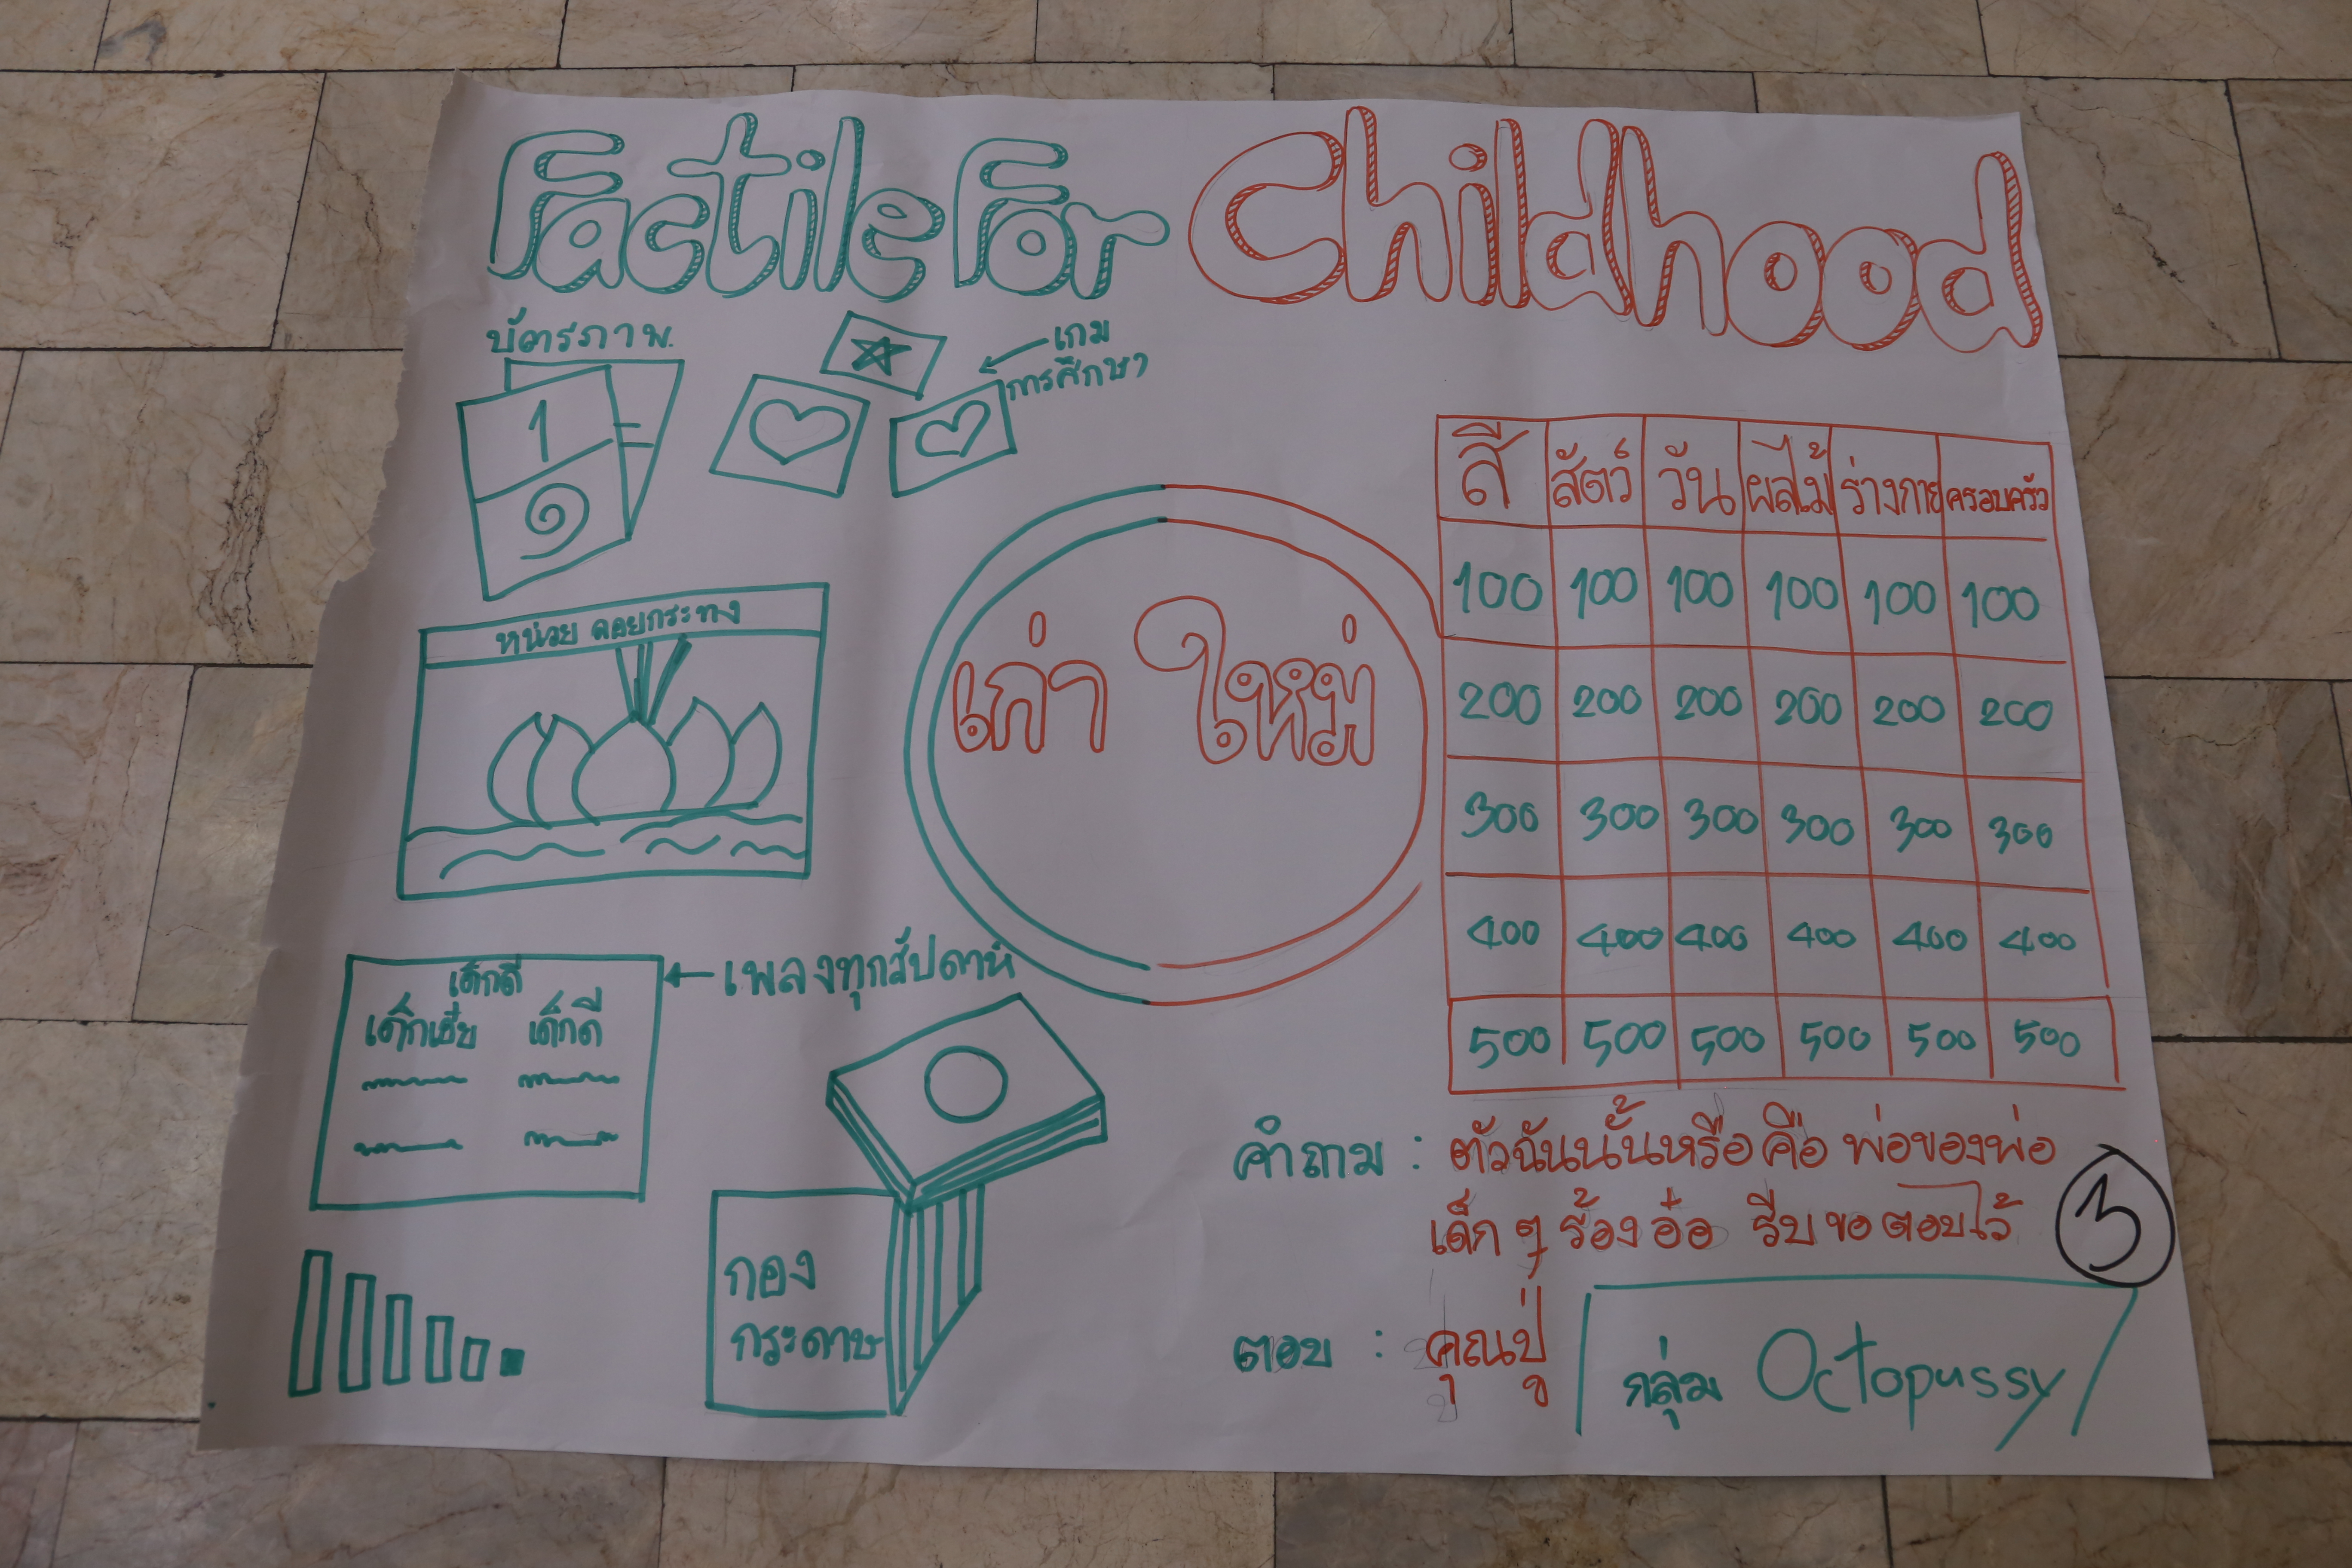 Factile For Childhood
บัตรภาพ.
เกม
การศึกษา
1
๑
หน่วย ลอยกระทง
เก่า ใหม่
สี สัตว์ วัน ผลไม้ ร่างกาย ครอบครัว
100 100 100 100 100 100
200 200 200 200 200 200
300 300 300 300 300 300
400 400 400 400 400 400
500 500 500 500 500 500
เพลงทุกสัปดาห์
เด็กดี
เด็กเอ๋ย เด็กดี
กอง
กระดาษ
คำถาม : ตัวฉันนั้นหรือ คือ พ่อของพ่อ
เด็ก ๆ ร้องอ๋อ รีบ ขอ ตอบไว้
ตอบ : คุณปู่
กลุ่ม Octopussy
3